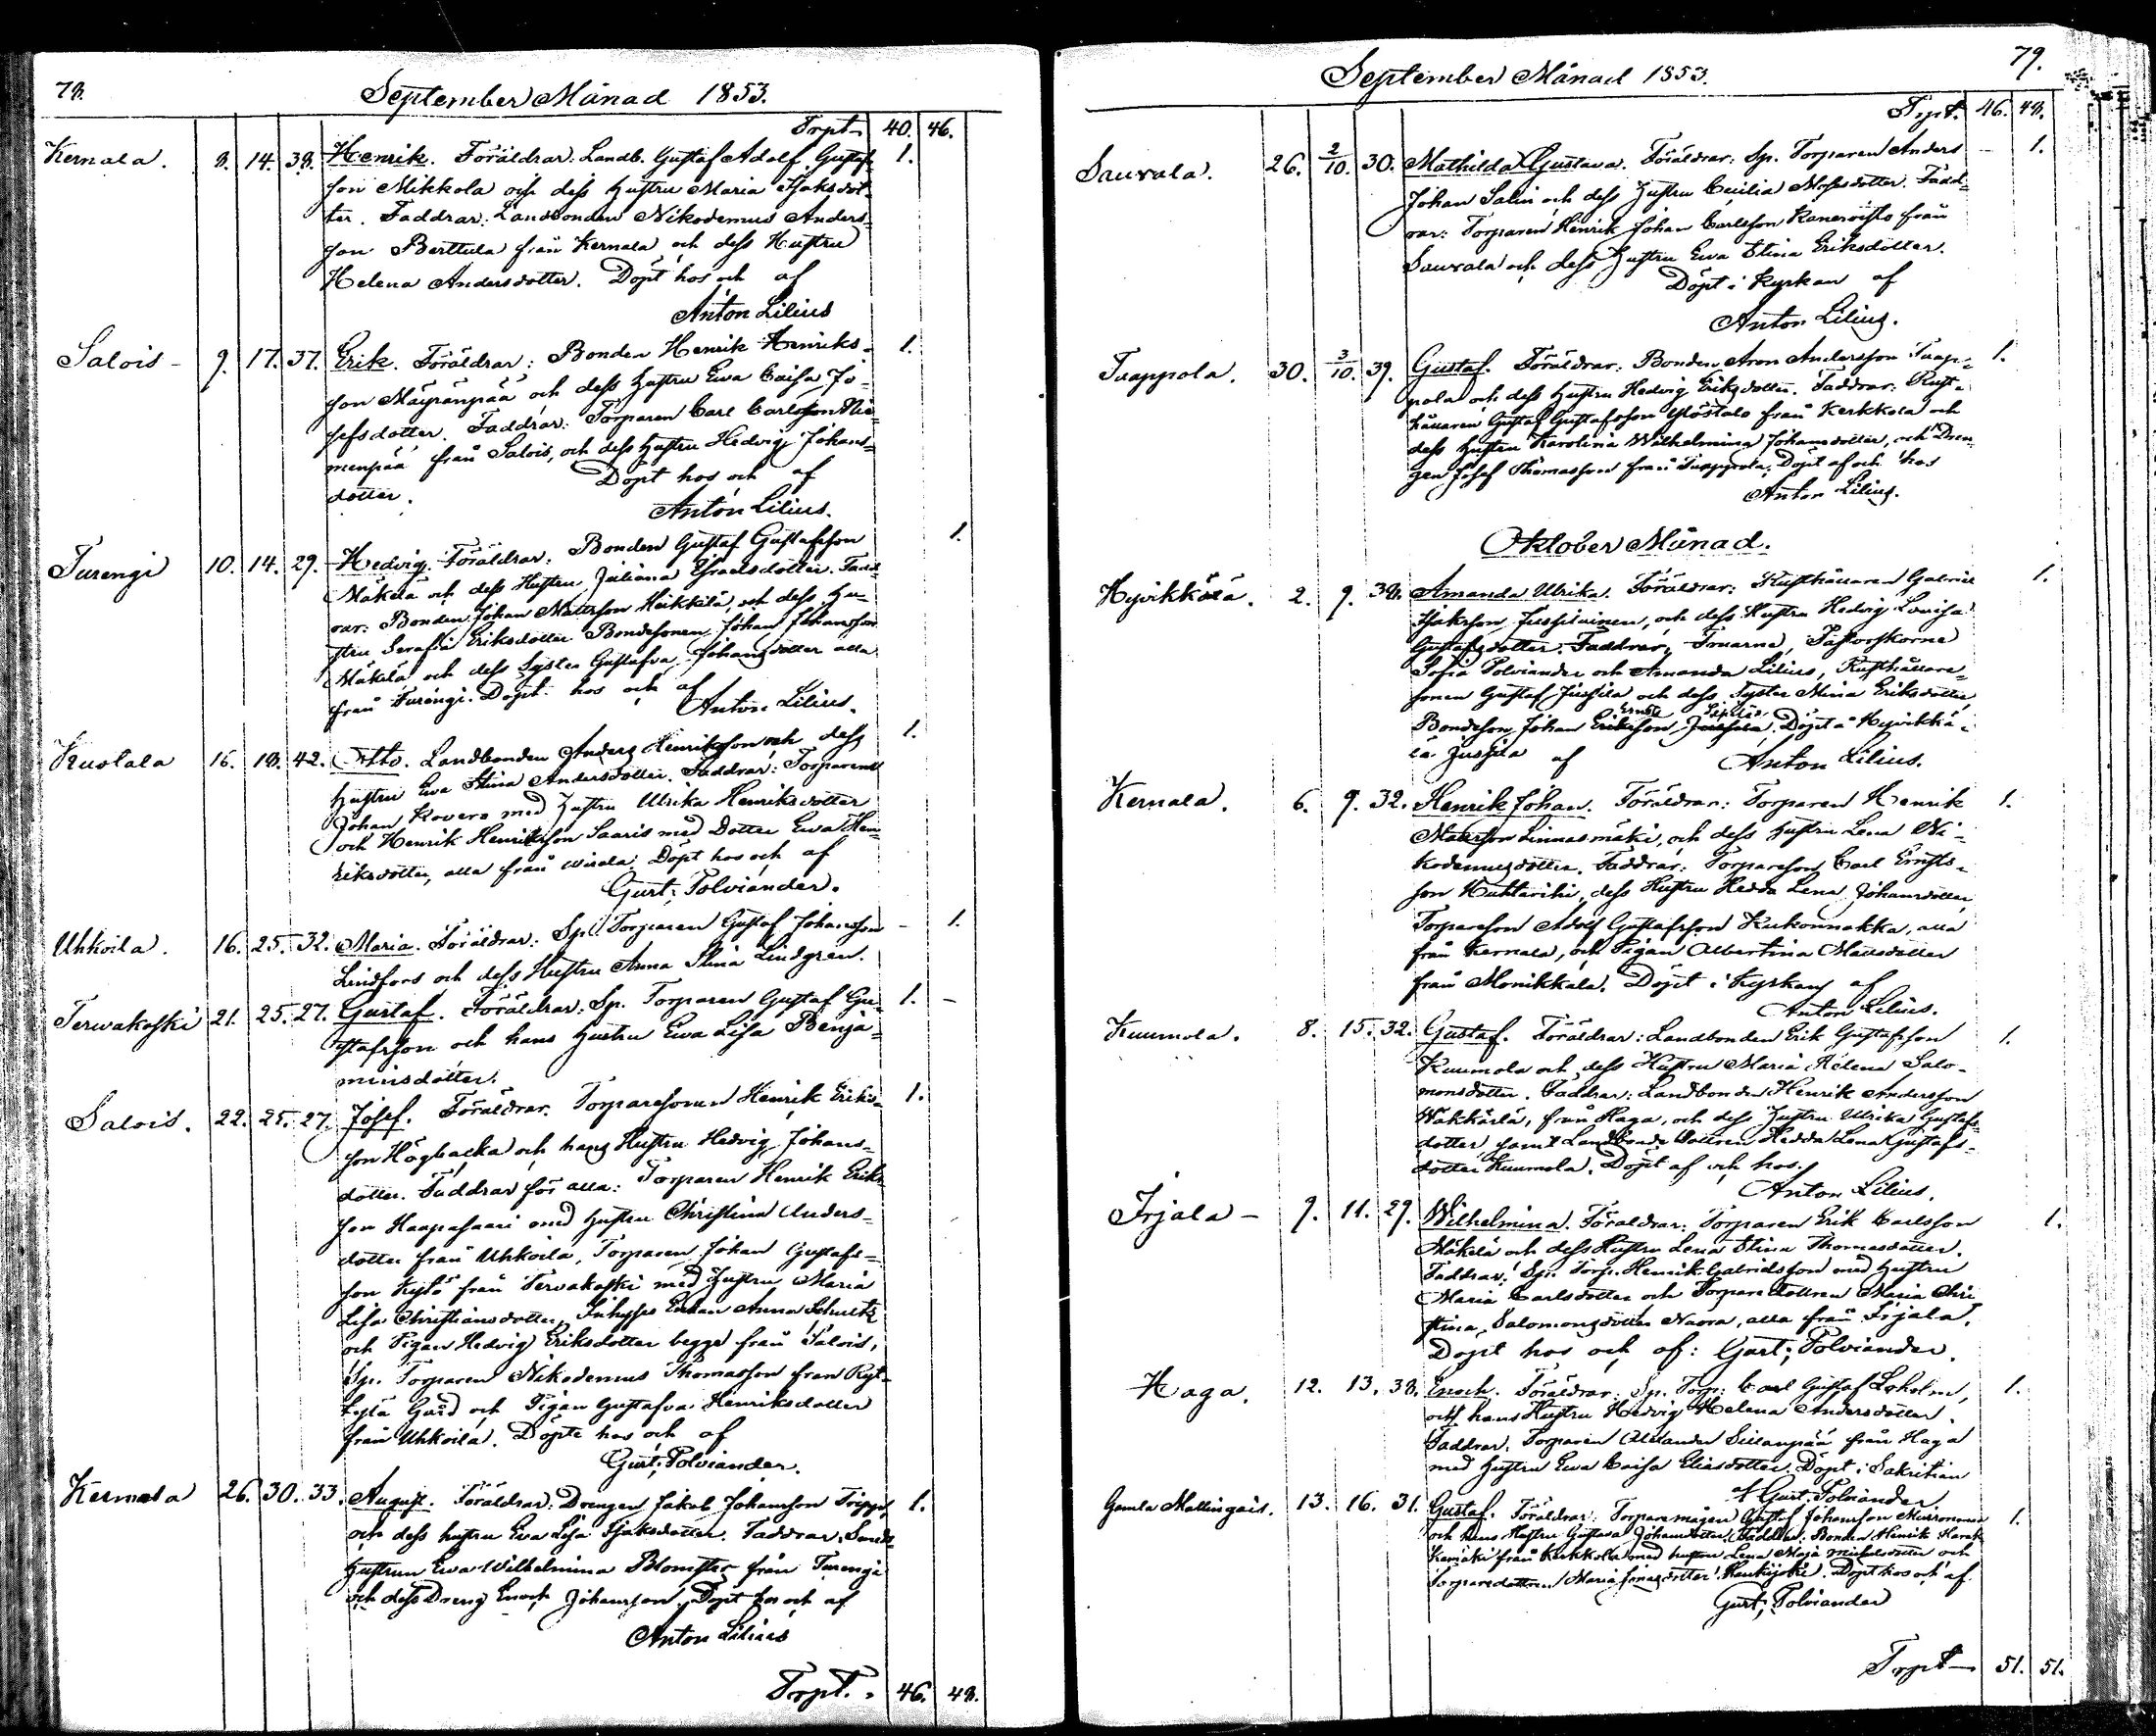 78.
September Månad 1853.
Trpt 40. 46.
Kernala. 8. 14. 38. Henrik. Föräldrar: Landb. Gustaf Adolf Gustaf- 1.
son Mikkola och dess Hustru Maria Isaksdot-
ter. Faddrar: Landbonden Nikodemus Anders-
son Berttula från Kernala och dess Hustru
Helena Andersdotter. Döpt hos och af
Anton Lilius
Salois - 9. 17. 37. Erik. Föräldrar: Bonden Henrik Henriks- 1.
son Mäyränpää och dess hustru Ewa Caisa Jo-
sefsdotter. Faddrar: Torparen Carl Carlsson Nie-
menpää från Salois, och dess hustru Hedvig Johans-
dotter. Döpt hos och af
Anton Lilius.
Turengi 10. 14. 29. Hedvig. Föräldrar: Bonden Gustaf Gustafsson 1.
Mäkelä och dess Hustru Juliana Israelsdotter. Fadd-
rar: Bonden Johan Mattsson Heikkilä, och dess Hu-
stru Serafia Eriksdotter Bondesonen Johan Johansson
Mäkelä och dess Syster Gustafva Johansdotter alla
från Turengi. Döpt hos och af
Anton Lilius.
Kustala 16. 18. 42. Otto. Landbonden Anders Henriksson och dess 1.
hustru Ewa Stina Andersdotter. Faddrar: Torparene
Johan Rovere med hustru Ulrika Henriksdotter
och Henrik Henriksson Saaris med Dotter Ewa Hen-
riksdotter, alla från Wirala. Döpt hos och af
Gust; Polviander.
Uhkoila. 16. 25. 32. Maria. Föräldrar: Sp. Torparen Gustaf Johansson - 1.
Lindfors och dess Hustru Anna Stina Lindgren.
Terwakoski 21. 25. 27. Gustaf. Föräldrar: Sp. Torparen Gustaf Gu- 1. -
stafsson och hans hustru Ewa Lisa Benja-
minsdotter.
Salois. 22. 25. 27. Josef. Föräldrar. Torparesonen Henrik Eriks- 1.
son Högbacka och hans Hustru Hedvig Johans-
dotter. Faddrar för alla: Torparen Henrik Eriks-
son Haapasaari med hustru Christina Anders-
dotter från Uhkoila, Torparen Johan Gustafs-
son Kytö från Tervakoski med hustru Maria
Lisa Christiansdotter, Inhyses Enkan Anna Schultz
och Pigan Hedvig Eriksdotter begge från Salois,
Sp. Torparen Nikodemus Thomasson från Ryt-
tylä Gård och Pigan Gustafva Henriksdotter
från Uhkoila. Döpte hos och af
Gust; Polviander.
Kernala 26. 30. 33. August. Föräldrar: Drengen Jakob Johansson Trippi, 1.
och dess hustru Ewa Lisa Isaksdotter. Faddrar: Smeds
hustrun Ewa Wilhelmina Blomster från Turengi
och dess Dreng Enoch Johansson. Döpt hos och af
Anton Lilius
Trpt. 46. 48.
79.
September Månad 1853.
Trpt. 46. 48.
Sauvala. 26. 2/10. 30. Mathilda Gustava. Föräldrar: Sp. Torparen Anders - 1.
Johan Salin och dess hustru Cecilia Mosesdotter. Fadd-
rar: Torparen Henrik Johan Carlsson Kanervisto från
Sauvala och dess hustru Ewa Stina Eriksdotter.
Döpt i Kyrkan af
Anton Lilius.
Tuappola. 30. 3/10. 39. Gustaf. Föräldrar: Bonden Aron Andersson Tuap- 1.
pola och dess hustru Hedvig Eriksdotter. Faddrar: Rust-
hållaren Gustaf Gustafsson Ylöstalo från Kerkkola och
dess hustru Karolina Wilhelmina Johansdotter, och Dren-
gen Josef Thomasson från Tuappola. Döpt af och hos
Anton Lilius.
Oktober Månad.
Hyvikkälä. 2. 9. 38. Amanda Ulrika. Föräldrar: Rusthållaren Gabriel 1.
Isaksson Jussilainen, och dess Hustru Hedvig Lovisa
Gustafsdotter. Faddrar: Fruarne, Pastorskorne
Sofia Polviander och Amanda Lilius, Rusthållare-
sonen Gustaf Jussila och dess Syster Stina Eriksdotter,
Bondeson Johan Eriksson Jussila. Döpt å Hyvikkä-
lä Jussila af Anton Lilius.
Kernala. 6. 9. 32. Henrik Johan. Föräldrar: Torparen Henrik 1.
Mattsson Linnasmäki, och dess hustru Lena Ni-
kodemusdotter. Faddrar: Torpareson Carl Ernsts-
son Huhtariihi, dess Hustru Hedda Lena Johansdotter,
Torpareson Adolf Gustafsson Kukonnokka, alla
från Kernala, och Pigan Albertina Mattsdotter
från Monikkala. Döpt i Kyrkan af
Anton Lilius.
Kuumola. 8. 15. 32. Gustaf. Föräldrar: Landbonden Erik Gustafsson 1.
Kuumola och dess Hustru Maria Helena Salo-
monsdotter. Faddrar: Landbonden Henrik Andersson
Wähkärlä, från Haga, och dess hustru Ulrika Gustafs-
dotter samt Landbonde Dottren Hedda Lena Gustafs-
dotter Kuumola. Döpt af och hos
Anton Lilius.
Irjala - 9. 11. 29. Wilhelmina. Föräldrar: Torparen Erik Carlsson 1.
Mäkelä och dess Hustru Lena Stina Thomasdotter.
Faddrar: Sp. Torp. Henrik Gabrielsson med hustru
Maria Carlsdotter och Torpare Dottren Maria Chri
stina Salomonsdotter Naera, alla från Irjala.
Döpt hos och af: Gust; Polviander.
Haga. 12. 13. 38. Enoch. Föräldrar: Sp. Torp: Carl Gustaf Loholm, 1.
och hans Hustru Hedvig Helena Andersdotter.
Faddrar: Torparen Alexander Sillanpää från Haga
med hustru Ewa Caisa Eliasdotter. Döpt i Sakristian
af Gust: Polviander.
Gamla Mallingais. 13. 16. 31. Gustaf. Föräldrar: Torparemågen Gustaf Johansson 1.
och hans Hustru Gustava Johansdotter. Faddrar: Bonden Henrik
från Kerkkola med hustru Lena Maja Michelsdotter och
Torparedottren Maria Jonasdotter. Döpt hos och af.
Gust; Polviander
Trpt 51. 51.